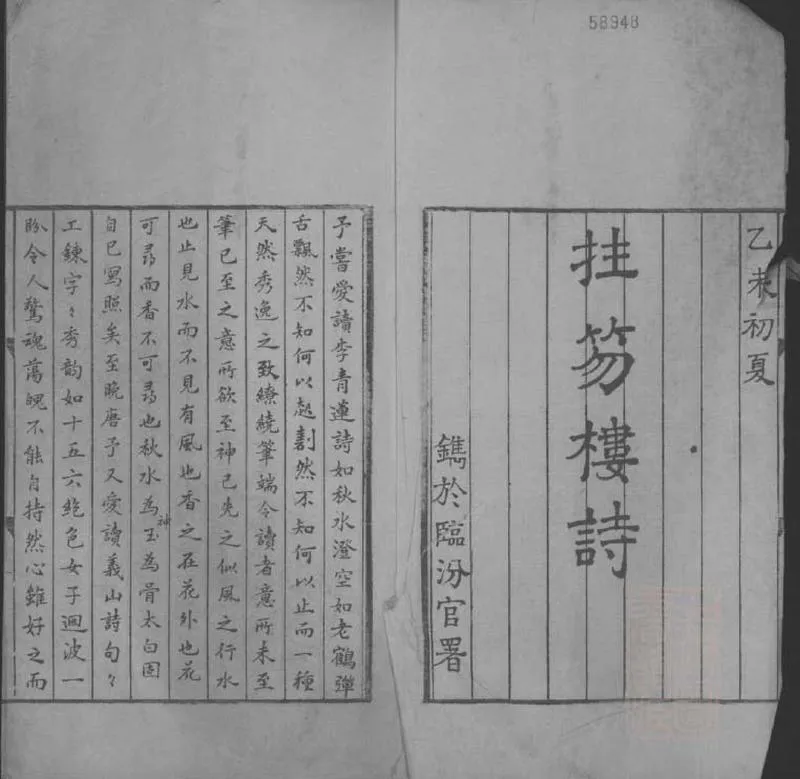 58948
乙未初夏
拄笏樓詩
鐫於臨汾官署
予嘗愛讀李青蓮詩如秋水澄空如老鶴彈
舌飄然不知何以起劃然不知何以止而一種
天然秀逸之致繚繞筆端令讀者意所未至
筆已至之意所欲至神已先之似風之行水
也止見水而不見有風也香之在花外也花
可尋而香不可尋也秋水為神玉為骨太白固
自已寫照矣至晚唐予又愛讀義山詩句々
工鍊字々秀韵如十五六絶色女子迴波一
盼令人驚魂蕩魄不能自持然心雖好之而